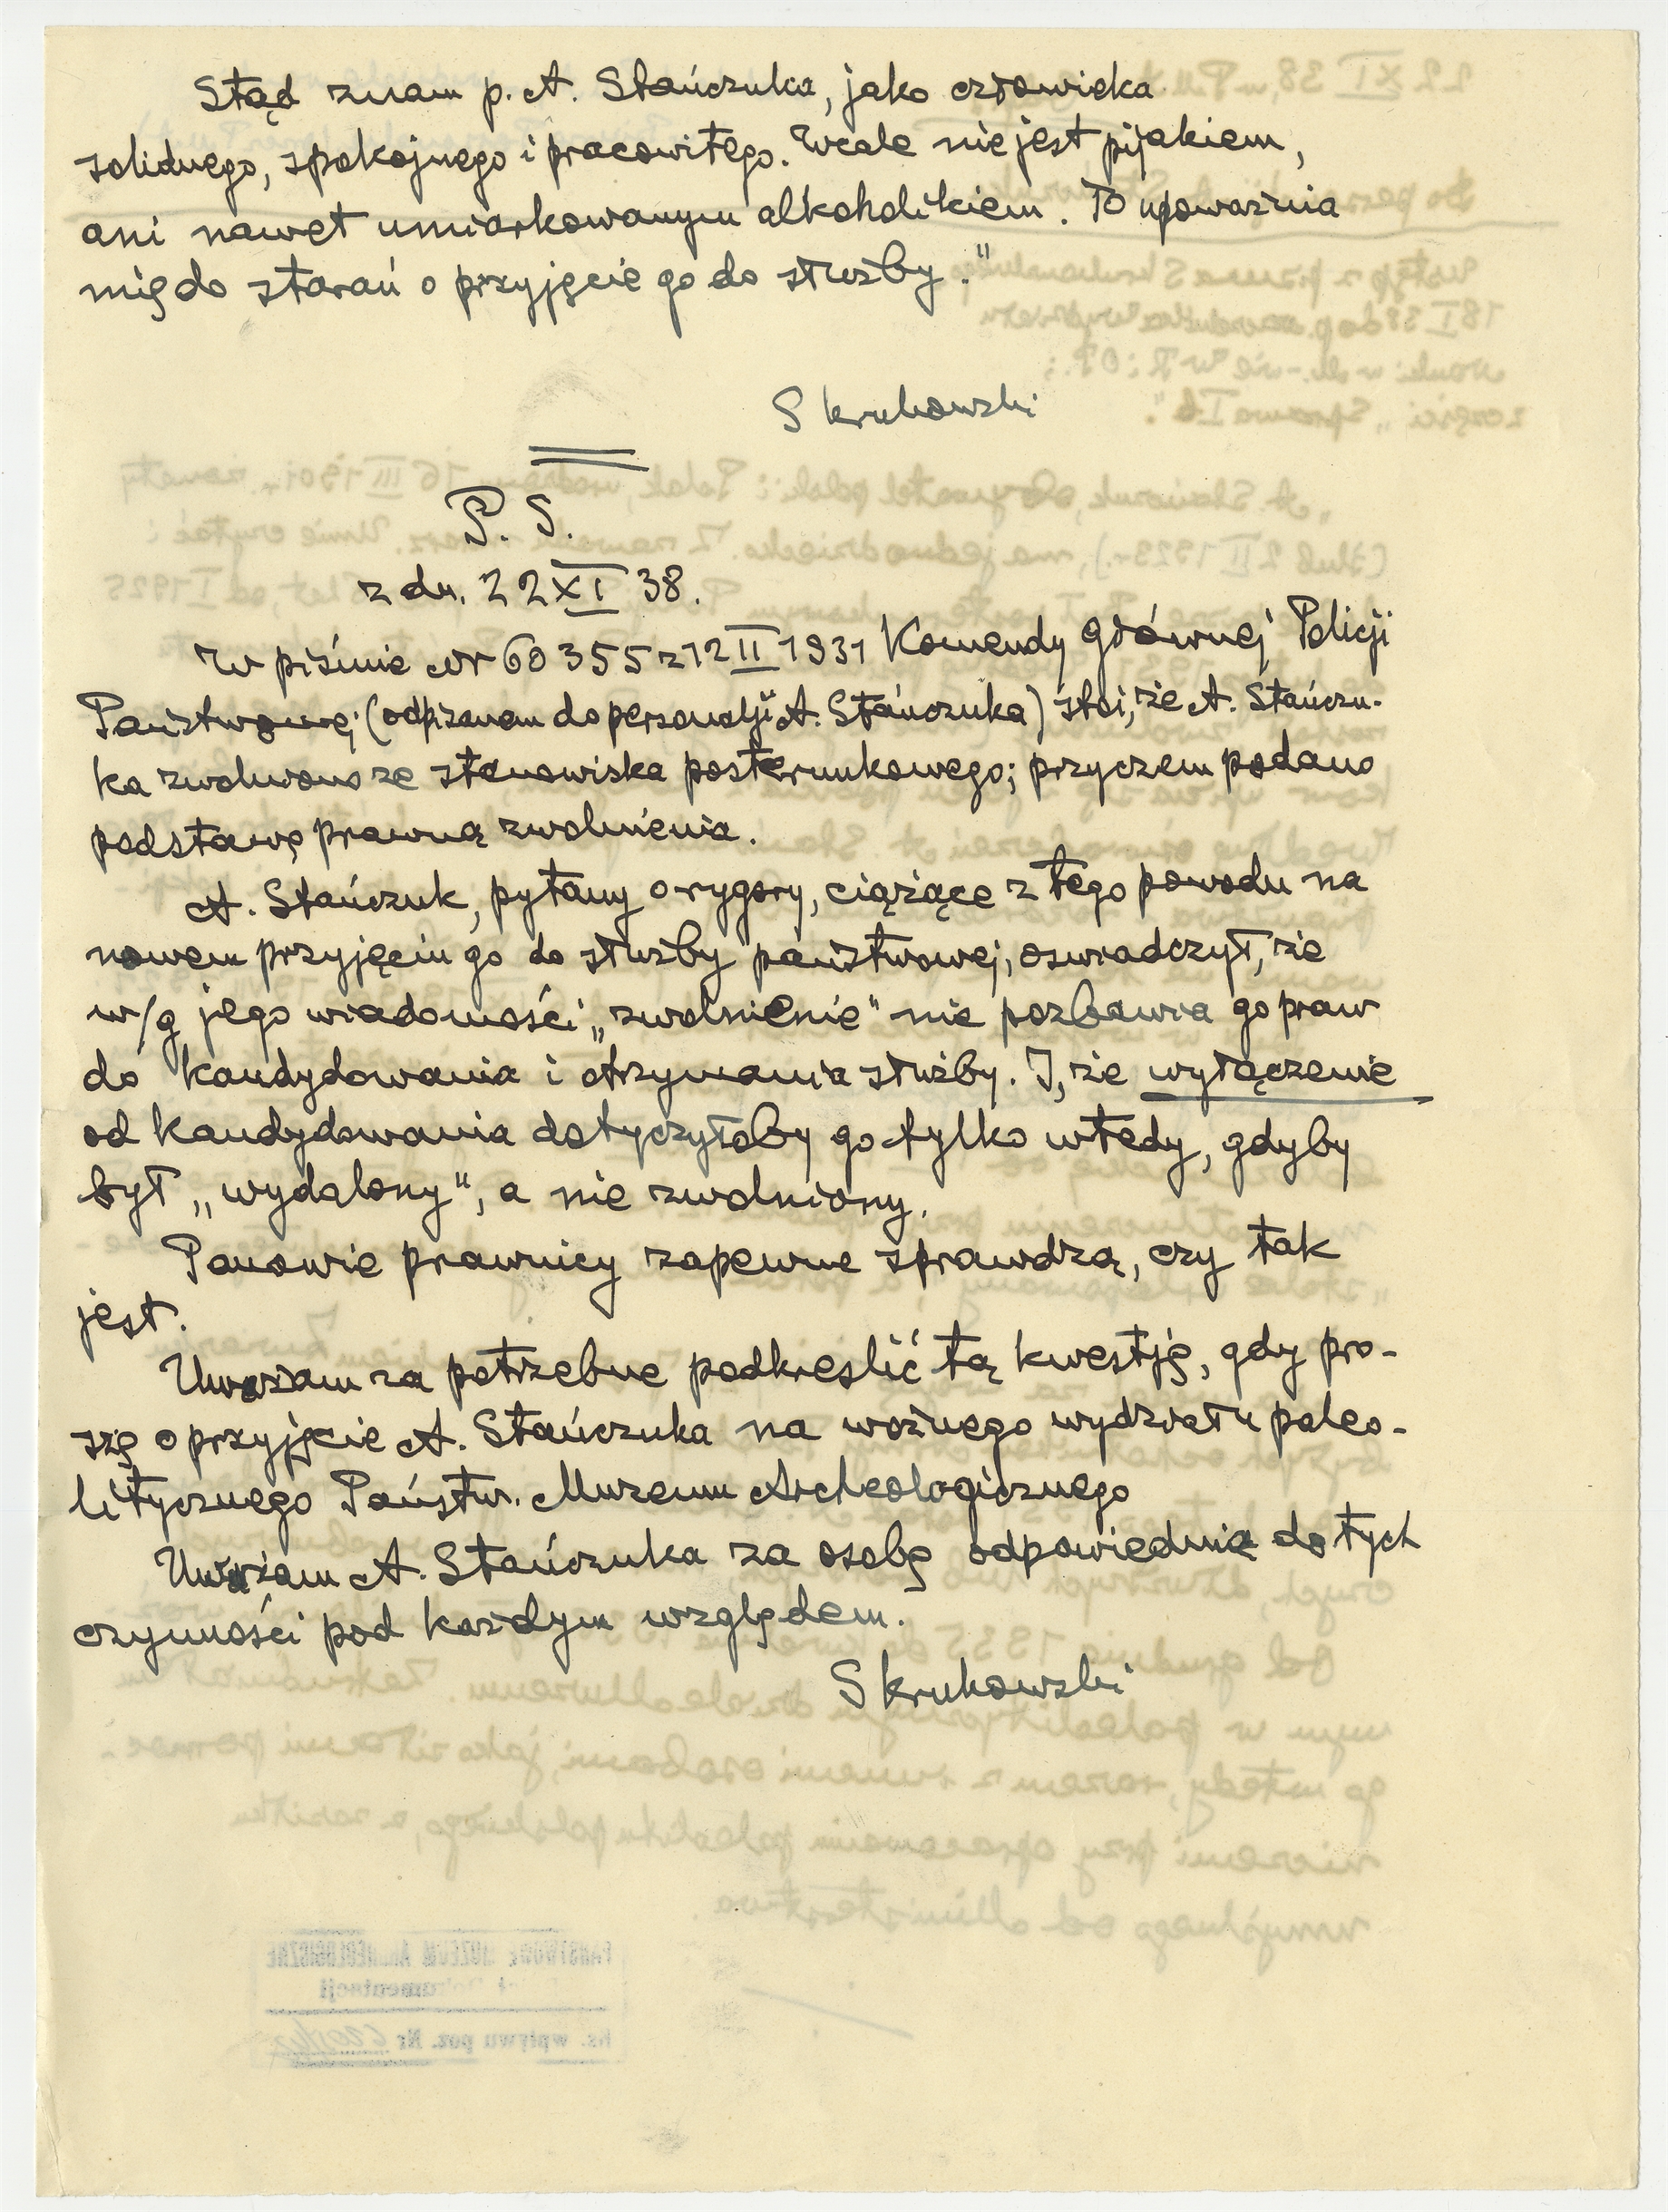 Stąd znam p. A. Stańczuka, jako człowieka
solidnego, spokojnego i pracowitego. Wcale nie jest pijakiem,
ani nawet umiarkowanym alkoholikiem. To upoważnia
mię do starań o przyjęcie go do służby."
SKrukowski
P. S.
z dn. 22 XI 38.
W piśmie Nr 60355 z 12 II 1931 Komendy głównej Policji
Państwowej (odpisanem do personalji A. Stańczuka) stoi, że A. Stańczu-
ka zwolniono ze stanowiska posterunkowego; przyczem podano
podstawę prawną zwolnienia.
A. Stańczuk, pytany o rygory, ciążące z tego powodu na
nowem przyjęciu go do służby państwowej, oswiadczył, że
w/g jego wiadomości „zwolnienie" nie pozbawia go praw
do kandydowania i otrzymania służby. I, że wyłączenie
od kandydowania dotyczyłoby go tylko wtedy, gdyby
był „wydalony", a nie zwolniony.
Panowie prawnicy zapewne sprawdzą, czy tak
jest.
Uważam za potrzebne podkreslić tą kwestję, gdy pro-
szę o przyjęcie A. Stańczuka na woźnego wydziału paleo-
litycznego Państw. Muzeum Archeologicznego
Uważam A. Stańczuka za osobę odpowiednią do tych
czynności pod każdym względem.
SKrukowski